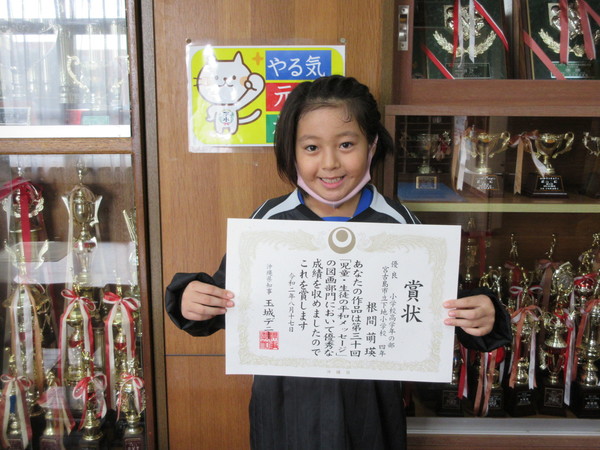 やる気
元
賞状
優良 小学校高学年の部
宮古島市立下地小学校 四年
根間 萌瑛
あなたの作品は第三十回
「児童・生徒の平和メッセージ」
の図画部門において優秀な
成績を収めましたので
これを賞します
令和二年八月十七日
沖縄県知事 玉城デニー